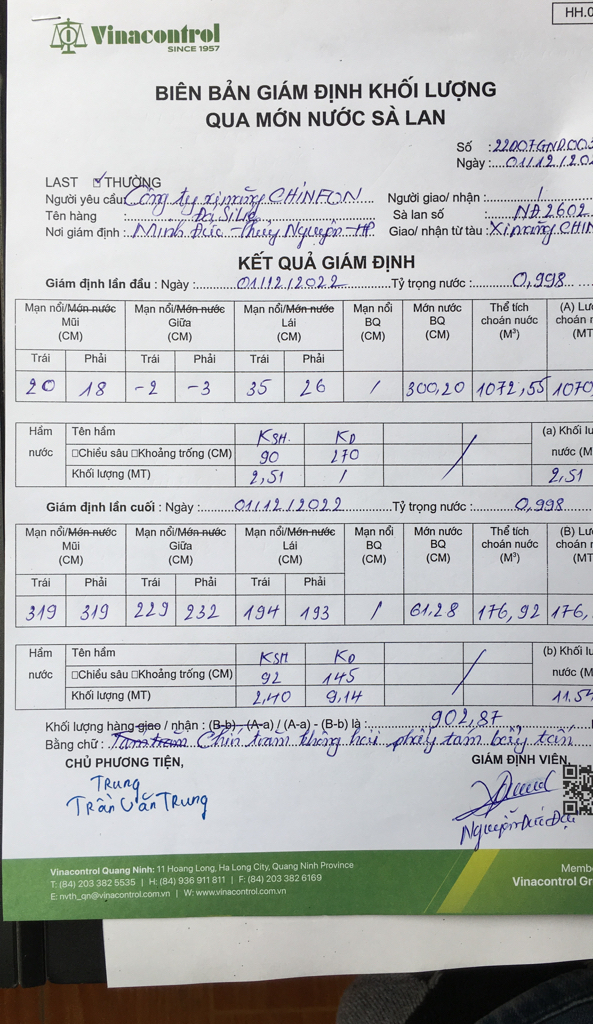 HH.0
Vinacontrol
SINCE 1957
BIÊN BẢN GIÁM ĐỊNH KHỐI LƯỢNG
QUA MỚN NƯỚC SÀ LAN
Số : 22D07GND.003
Ngày :....01/12/202
LAST ☑THƯỜNG
Người yêu cầu Công ty xi măng CHINFON Người giao/ nhận : /
Tên hàng : Đá Silic Sà lan số : NĐ2602
Nơi giám định : Minh Đức - Thủy Nguyên - HP Giao/ nhận từ tàu : Xi măng CHIN
KẾT QUẢ GIÁM ĐỊNH
Giám định lần đầu : Ngày : 01/12/2022 Tỷ trọng nước : 0,998
Mạn nổi/Mớn nước Mũi (CM) Mạn nổi/Mớn nước Giữa (CM) Mạn nổi/Mớn nước Lái (CM) Mạn nổi BQ (CM) Mớn nước BQ (CM) Thể tích choán nước (M³) (A) Lư choán n (MT
Trái Phải Trái Phải Trái Phải
20 18 -2 -3 35 26 / 300,20 1072,55 1070
Hầm nước Tên hầm KSH. KĐ (a) Khối lư
□Chiều sâu □Khoảng trống (CM) 90 270 nước (M
Khối lượng (MT) 2,51 / 2,51
Giám định lần cuối : Ngày : 01/12/2022 Tỷ trọng nước : 0,998
Mạn nổi/Mớn nước Mũi (CM) Mạn nổi/Mớn nước Giữa (CM) Mạn nổi/Mớn nước Lái (CM) Mạn nổi BQ (CM) Mớn nước BQ (CM) Thể tích choán nước (M³) (B) Lư choán n (MT
Trái Phải Trái Phải Trái Phải
319 319 229 232 194 193 / 61,28 176,92 176,
Hầm nước Tên hầm KSH KĐ (b) Khối lư
□Chiều sâu □Khoảng trống (CM) 92 145 nước (M
Khối lượng (MT) 2,40 9,14 11,54
Khối lượng hàng giao / nhận : (B-b) - (A-a) / (A-a) - (B-b) là : 902,87
Bằng chữ : Tám trăm Chín trăm không hai phẩy tám bảy tấn
CHỦ PHƯƠNG TIỆN, GIÁM ĐỊNH VIÊN,
Trung
Trần Văn Trung
Nguyễn Đức
Vinacontrol Quang Ninh: 11 Hoang Long, Ha Long City, Quang Ninh Province
T: (84) 203 382 5535 | H: (84) 936 911 811 | F: (84) 203 382 6169
E: nvth_qn@vinacontrol.com.vn | W: www.vinacontrol.com.vn
Membe
Vinacontrol Gr